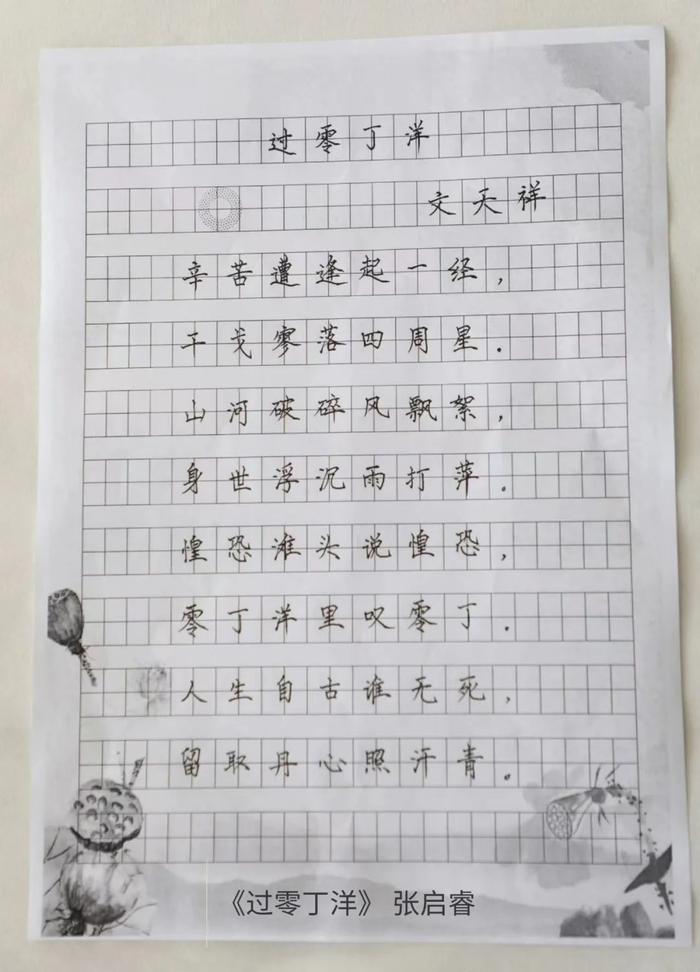 过零丁洋
文天祥
辛苦遭逢起一经，
干戈寥落四周星.
山河破碎风飘絮，
身世浮沉雨打萍.
惶恐滩头说惶恐，
零丁洋里叹零丁.
人生自古谁无死，
留取丹心照汗青.
《过零丁洋》 张启睿